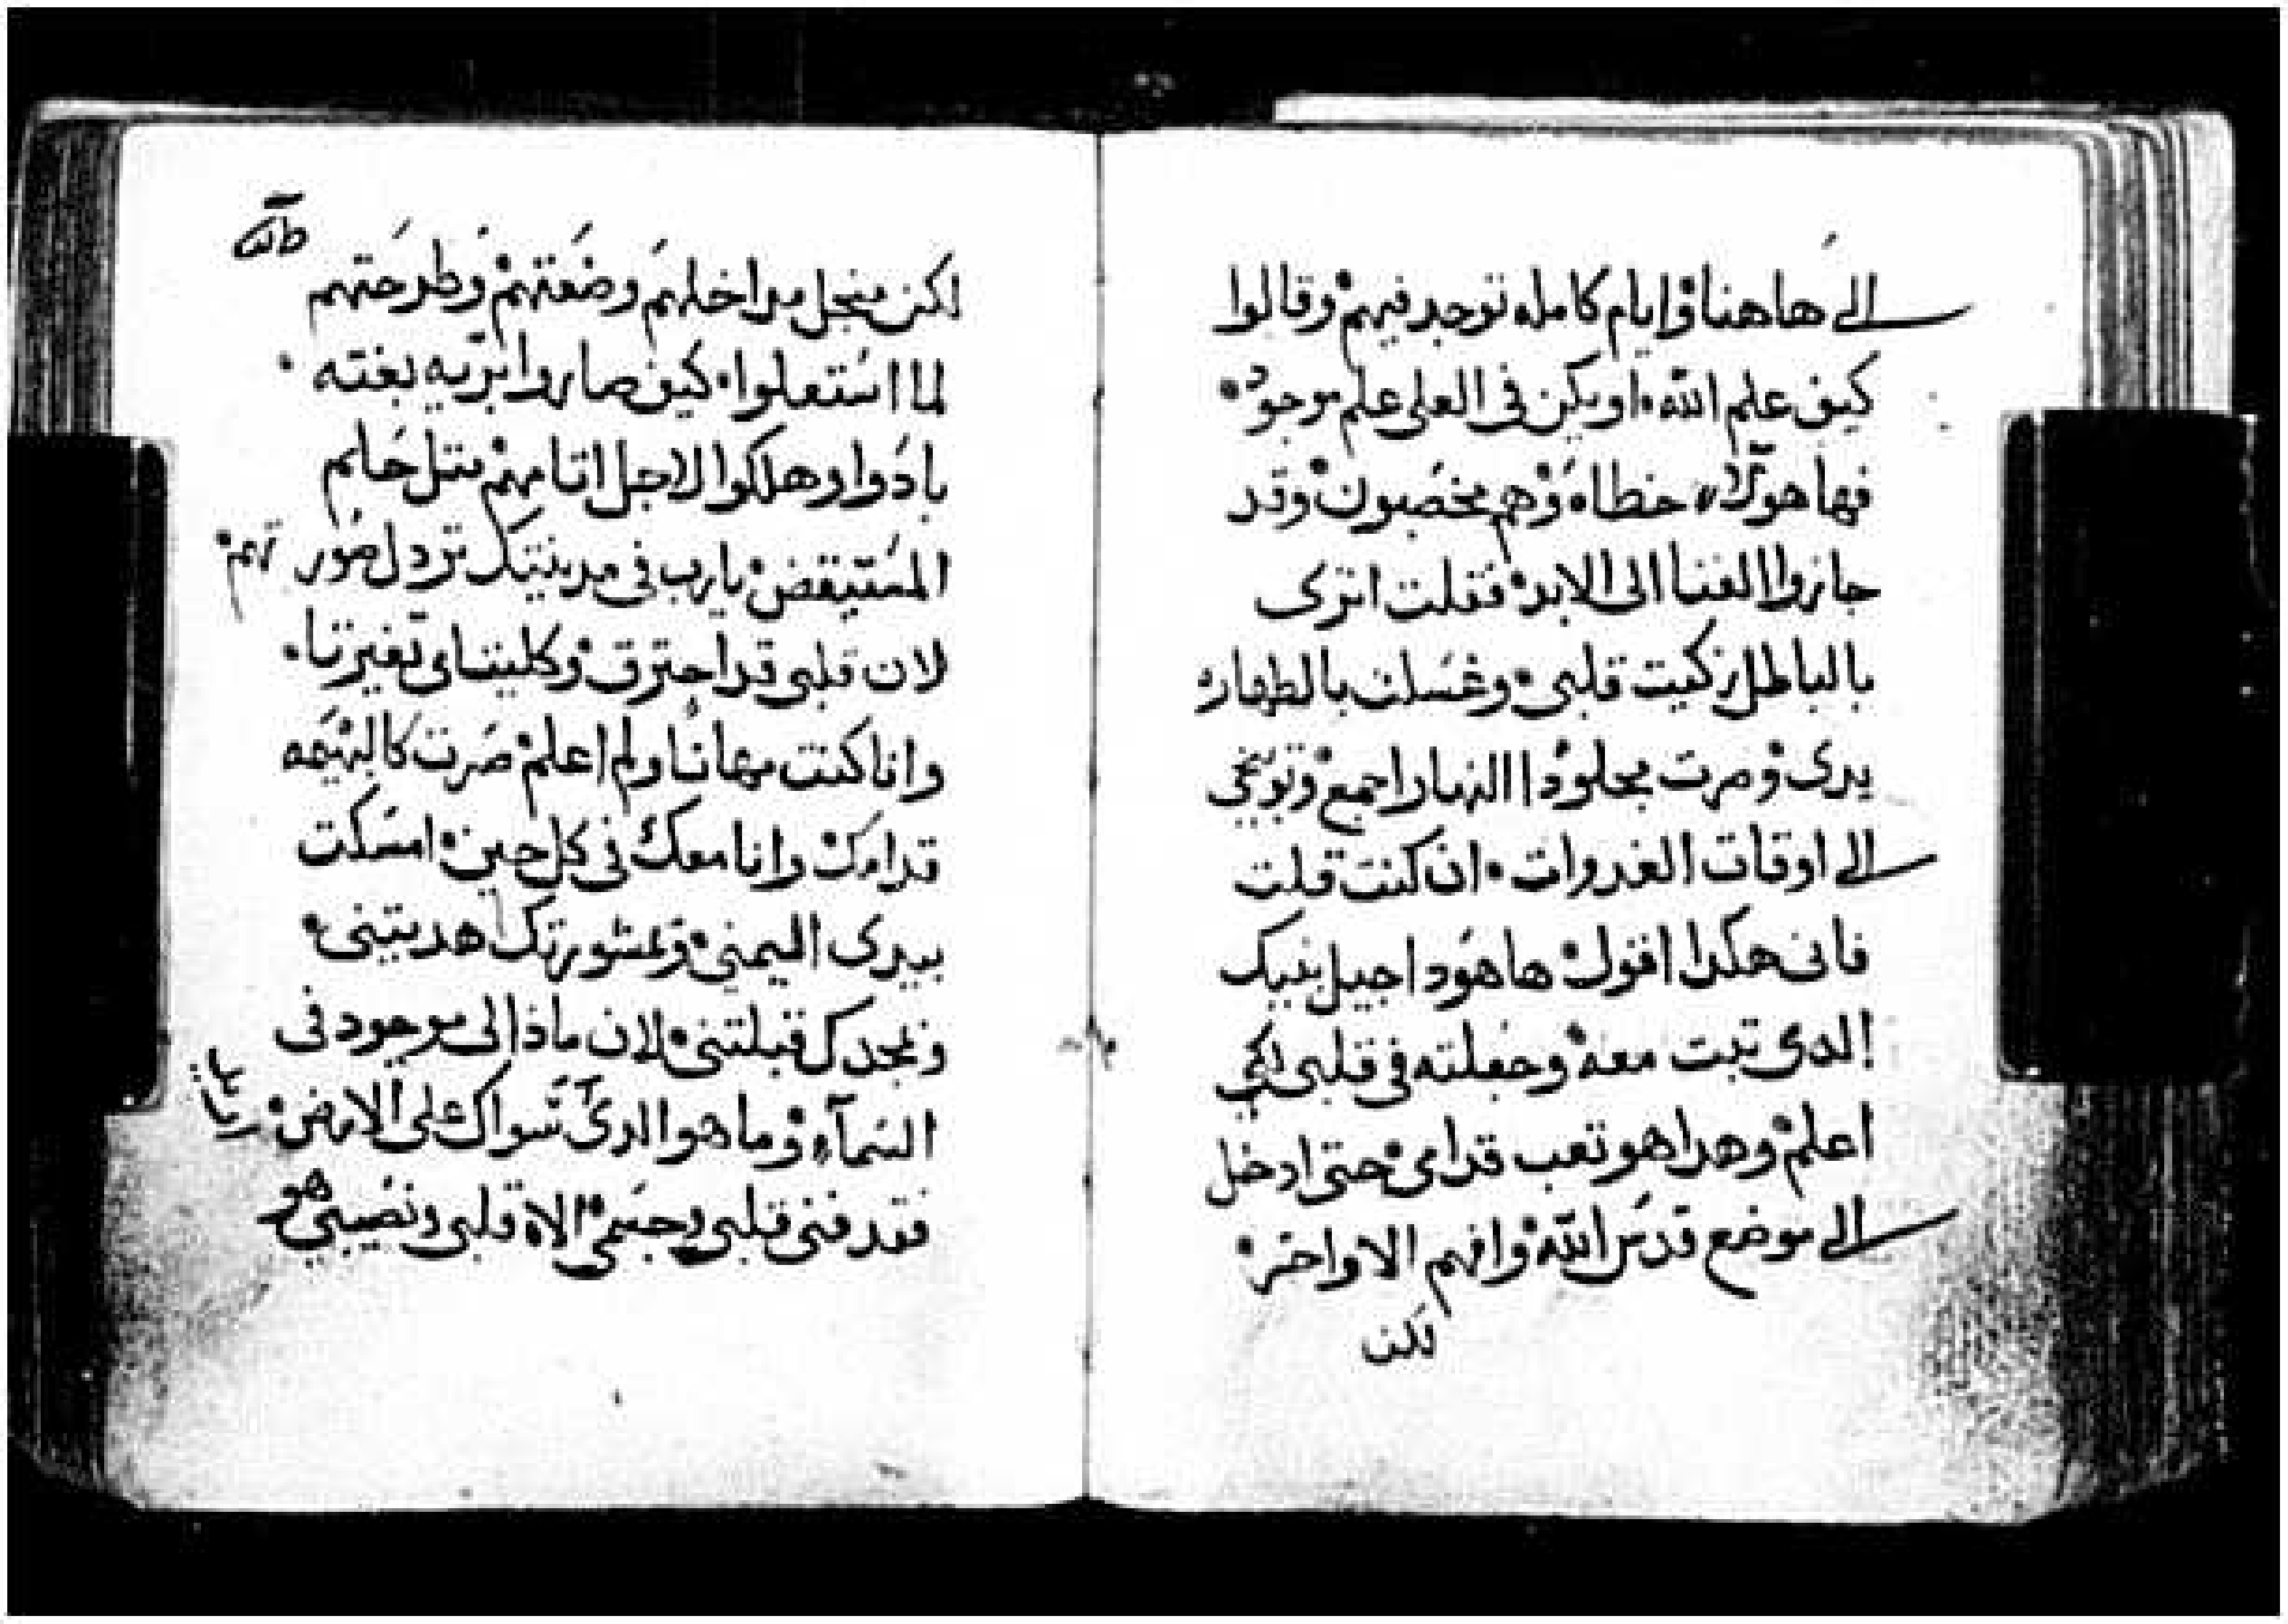 الى هاهنا وايام كامله توجد فيهم وقالوا
كيف علم الله او يكن فى العلى علم موجود
فها هولاء خطاه وهم مخصبون وقد
جازوا الغنا الى الابد فقلت اترى
بالباطل زكيت قلبى وغسلت بالطهاره
يدى وصرت مجلودا النهار اجمع وتوبيخى
الى اوقات الغدوات ان كنت قلت
فانى هكدا اقول هاهود اجيل بنيك
الدى تبت معه وجعلته فى قلبى لكى
اعلم وهدا هو تعب قدامى حتى ادخل
الى موضع قدس الله وافهم الاواخر
لكن
لكن منجل مداخلهم وضعتهم وطرحتهم
لما استعلوا كيف صاروا بريه بغته
بادوا وهلكوا لاجل اتامهم متل حلم
المستيقض يارب فى مدينتك تردل صورتهم
لان قلبى قد احترق وكليتاى تغيرتا
وانا كنت مهانا ولم اعلم صرت كالبهيمه
قدامك وانا معك فى كل حين امسكت
بيدى اليمنى وبمشورتك هديتنى
وبمجدك قبلتنى لان ماذا لى موجود فى
السماء وما هو الدى سواك على الارض
فقد فنى قلبى وجسمى الاه قلبى ونصيبى هو